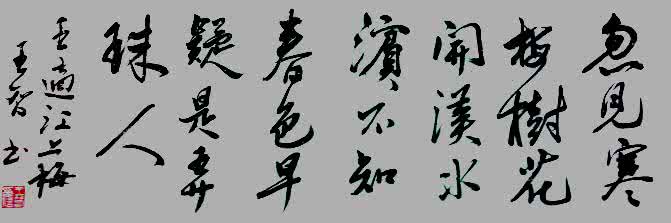 忽見寒
梅樹花
開漢水
濱不知
春色早
疑是弄
珠人
王適江上梅
王智书